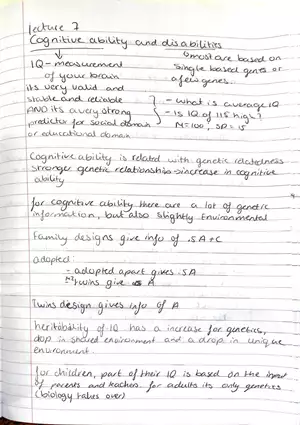 lecture 7
Cognitive ability and disabilities
↳most are based on
single based genes or
a few genes.
IQ - measurement
of your brain
its very valid and
stable and reliable
AND its a very strong
predictor for social domain
or educational domain
- what is average IQ
- is IQ of 115 high?
M=100, SD = 15
Cognitive ability is related with genetic relatedness
stronger genetic relationships → increase in cognitive
ability
for cognitive ability there are a lot of genetic
information, but also slightly environmental
Family designs give info of .5A+C
adopted:
- adopted apart gives .5A
twins give A
Twins design gives info of A
heritability of IQ has a increase for genetics,
drop in shared environment and a drop in unique
environment.
for children, part of their IQ is based on the input
of parents and teachers. for adults its only genetics
(biology takes over)